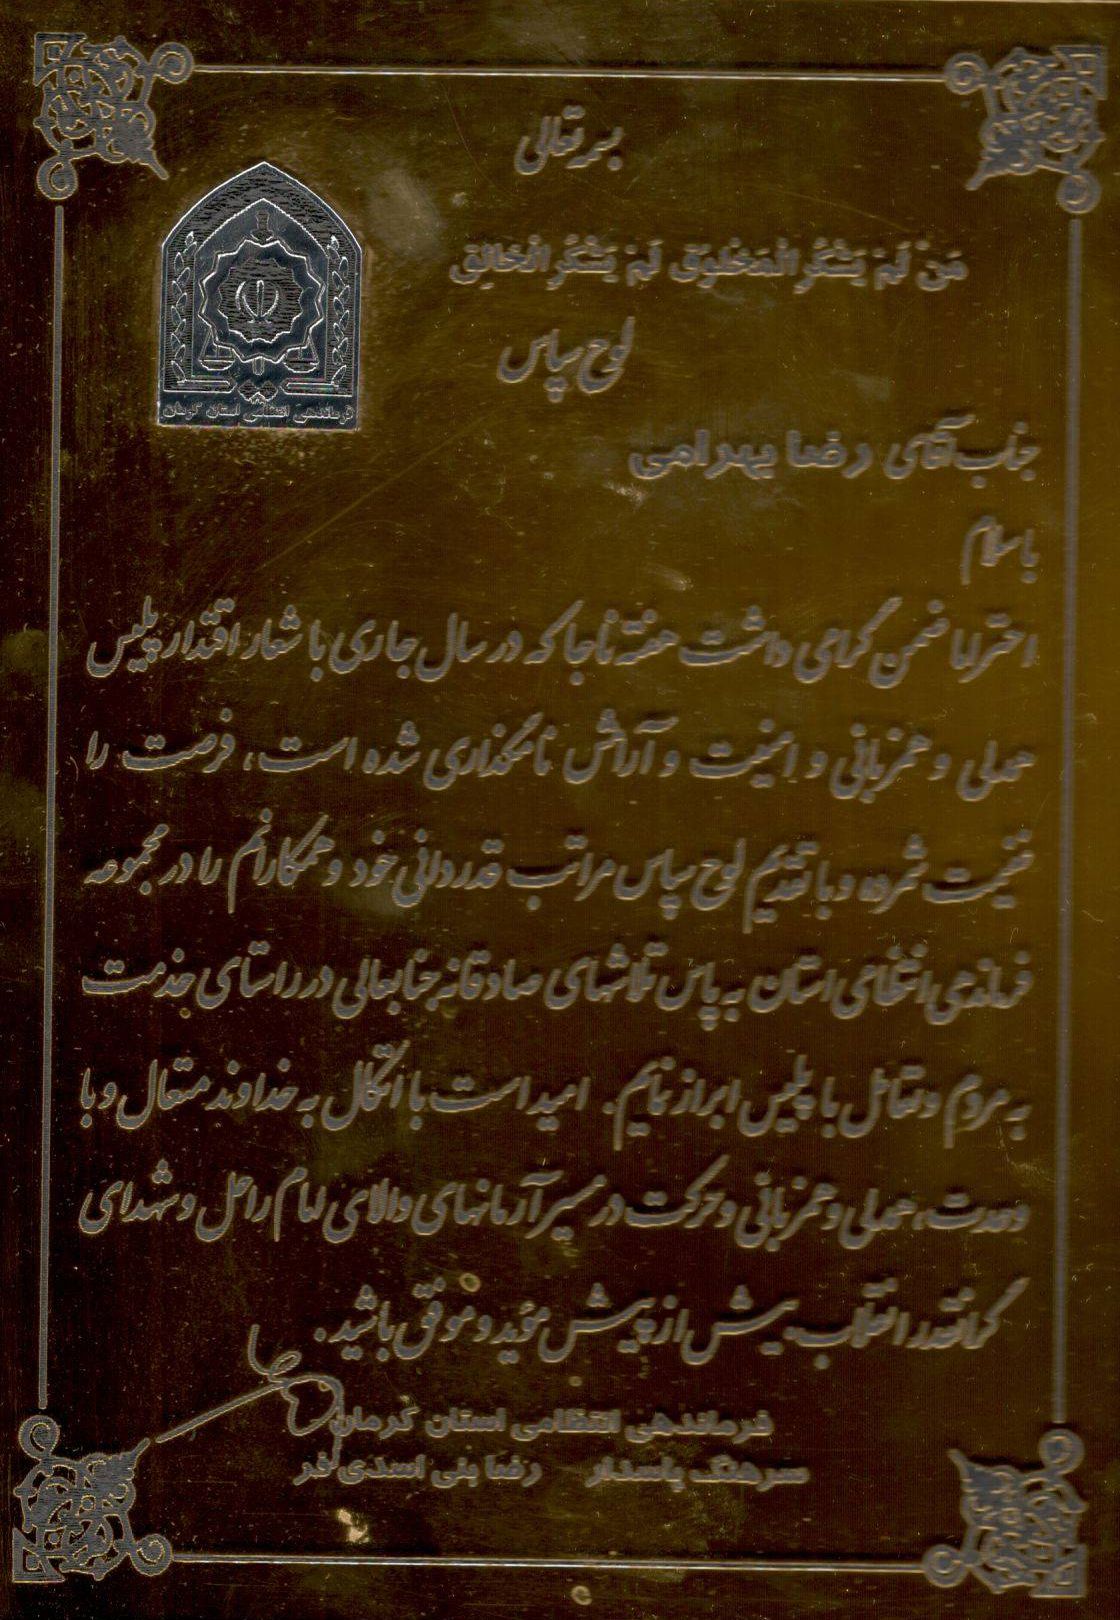 بسمه تعالی
مَنْ لَمْ یَشْکُرِ الْمَخْلُوقَ لَمْ یَشْکُرِ الْخالِقَ
لوح سپاس
فرماندهی انتظامی استان کرمان
جناب آقای رضا بهرامی
با سلام
احتراما ضمن گرامی داشت هفته ناجا که در سال جاری با شعار اقتدار پلیس
همدلی و همزبانی و امنیت و آرامش نامگذاری شده است، فرصت را
غنیمت شمرده و با تقدیم لوح سپاس مراتب قدردانی خود و همکارانم را در مجموعه
فرماندهی انتظامی استان به پاس تلاشهای صادقانه جنابعالی در راستای خدمت
به مردم و تعامل با پلیس ابراز نمایم. امید است با اتکال به خداوند متعال و با
وحدت، همدلی و همزبانی و حرکت در مسیر آرمانهای والای امام راحل و شهدای
گرانقدر انقلاب، بیش از پیش مؤید و موفق باشید.
فرماندهی انتظامی استان کرمان
سرهنگ پاسدار رضا بنی اسدی فر